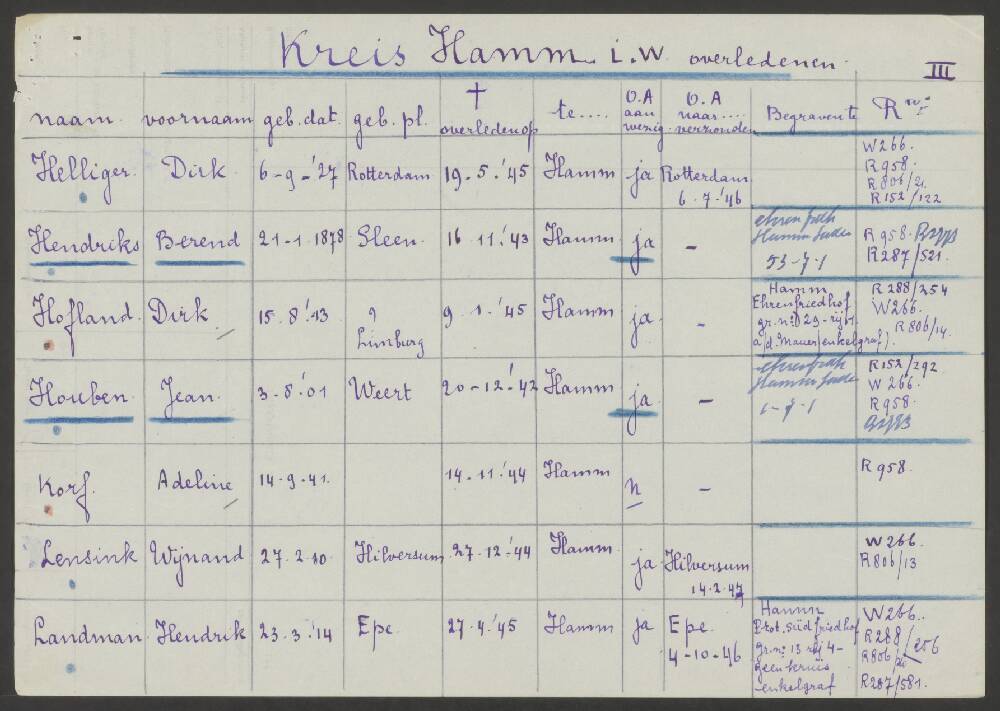 Kreis Hamm i.W. overledenen.
III
naam. voornaam geb.dat. geb.pl. † overleden op te.... O.A aan wezig. O.A naar.... verzonden Begraven te R nrs
Helliger. Dirk 6-9-'27 Rotterdam 19.5.'45 Hamm ja Rotterdam 6.7.'46 W266. R958. R806/21. R152/122
Hendriks Berend 21-1.1878 Sleen. 16.11.'43 Hamm ja - 53-7-1 R958. R287/521.
Hofland. Dirk 15.8.'13 ? Limburg 9.1.'45 Hamm ja. - Hamm Ehrenfriedhof gr.no. 29-rij 1. a/d. Mauer (enkelgraf). R288/254 W266. R806/14.
Houben. Jean. 3-8.'01 Weert 20-12-'42 Hamm ja - 1-7-1 R152/292 W266. R958.
Korf. Adeline 14-9-41. 14.11.'44 Hamm n - R958.
Lensink Wijnand 27.2.20 Hilversum. 27.12.'44 Hamm. ja Hilversum 14.2.47 W266. R806/13
Landman. Hendrik 23.3.'14 Epe. 27.4.'45 Hamm ja Epe. 4-10-46 Hamm Prot. Südfriedhof gr.no. 13 rij 4- geen kruis enkelgraf W266. R288/206 R806/20 R287/581.